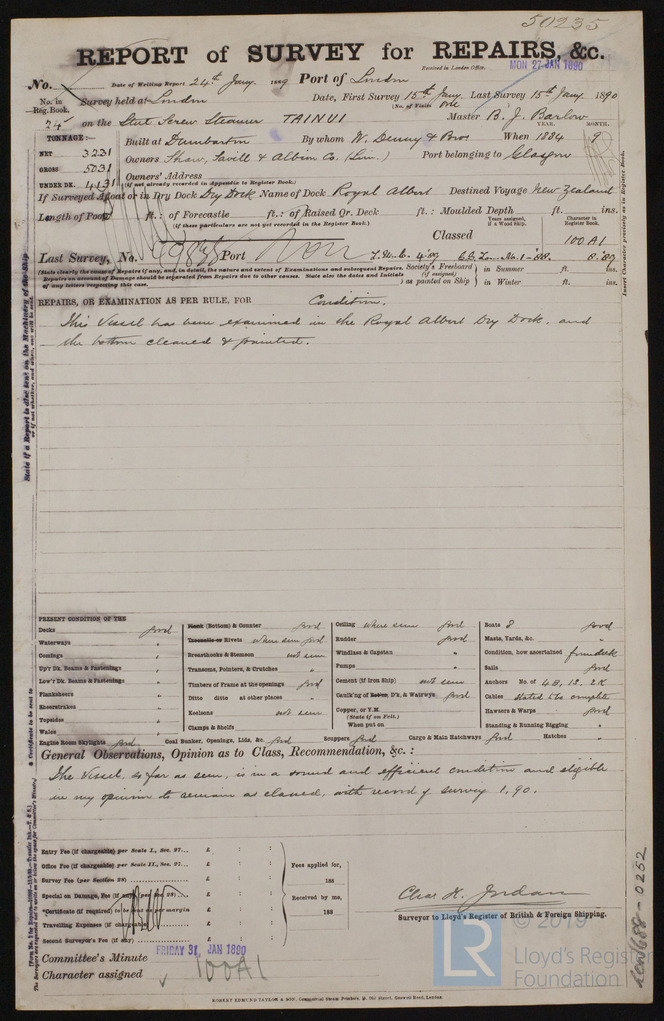 50235
REPORT of SURVEY for REPAIRS, &c.
Received in London Office. MON 27 JAN 1890
No. Date of Writing Report 24th Jany. 1889 Port of London
No. in Reg. Book. Survey held at London Date, First Survey 15th Jany. Last Survey 15th Jany. 1890
(No. of Visits One
24 on the Steel Screw Steamer TAINUI Master B. J. Barlow
TONNAGE:— Built at Dumbarton By whom W. Denny & Bros When 1884 YEAR. MONTH. 9
NET 3231 Owners Shaw, Savill & Albion Co. (Lim.) Port belonging to Glasgow
GROSS 5031 Owners' Address
UNDER DK. 4131 (if not already recorded in Appendix to Register Book.)
If Surveyed Afloat or in Dry Dock Dry Dock Name of Dock Royal Albert Destined Voyage New Zealand
Length of Poop ft.: of Forecastle ft.: of Raised Qr. Deck ft.: Moulded Depth ft. ins.
(if these particulars are not yet recorded in the Register Book.)
Years assigned, if a Wood Ship. Character in Register Book.
Classed 100A1
Last Survey, No. Port 8.89
(State clearly the cause of Repairs if any, and, in detail, the nature and extent of Examinations and subsequent Repairs.
Repairs on account of Damage should be separated from Repairs due to other causes. State also the dates and initials
of any letters respecting this case.
Society's Freeboard (if assigned) as painted on Ship } in Summer ft. ins.
in Winter ft. ins.
Insert Character precisely as in Register Book.
REPAIRS, OR EXAMINATION AS PER RULE, FOR Condition.
This Vessel has been examined in the Royal Albert Dry Dock, and
the bottom cleaned & painted.
State if a Report is also sent on the Machinery of the Ship
PRESENT CONDITION OF THE
Decks good
Waterways "
Comings "
Up'r Dk. Beams & Fastenings "
Low'r Dk. Beams & Fastenings "
Planksheers "
Sheerstrakes "
Topsides "
Wales "
Engine Room Skylights good
Plank (Bottom) & Counter good
Treenails or Rivets where seen good
Breasthooks & Stemson not seen
Transoms, Pointers, & Crutches "
Timbers of Frame at the openings good
Ditto ditto at other places "
Keelsons not seen
Clamps & Shelfs
Coal Bunker, Openings, Lids, &c. good
Ceiling where seen good
Rudder good
Windlass & Capstan "
Pumps "
Cement (if Iron Ship) not seen
Caulking of Bottom, D'k, & Watrwys good
Copper, or Y.M.
(State if on Felt.)
When put on
Scuppers good
Boats 8 good
Masts, Yards, &c. "
Condition, how ascertained from deck
Sails good
Anchors No. of 4B, 1S, 2K
Cables stated to be complete
Hawsers & Warps good
Standing & Running Rigging "
Cargo & Main Hatchways good Hatches "
General Observations, Opinion as to Class, Recommendation, &c. :
The Vessel, so far as seen, is in a sound and efficient condition and eligible
in my opinion to remain as classed, with record of survey 1.90.
Entry Fee (if chargeable) per Scale I., Sec. 27... £ : :
Office Fee (if chargeable) per Scale II., Sec. 27... £ : :
Survey Fee (per Section 28) £ : :
Special on Damage, Fee (if any) (per Sec. 28) £ : :
*Certificate (if required) to be sent as per margin
Travelling Expenses (if chargeable) £ : :
Second Surveyor's Fee (if any) £ : :
Fees applied for,
188
Received by me,
188
Chas. H. Jordan
Surveyor to Lloyd's Register of British & Foreign Shipping.
Committee's Minute FRIDAY 31 JAN 1890
Character assigned 100A1
ROBERT EDMUND TAYLOR & SON, Commercial Steam Printers, 19, Old Street, Goswell Road, London.
© 2019
LR
Lloyd's Register
Foundation
Lon688-0252